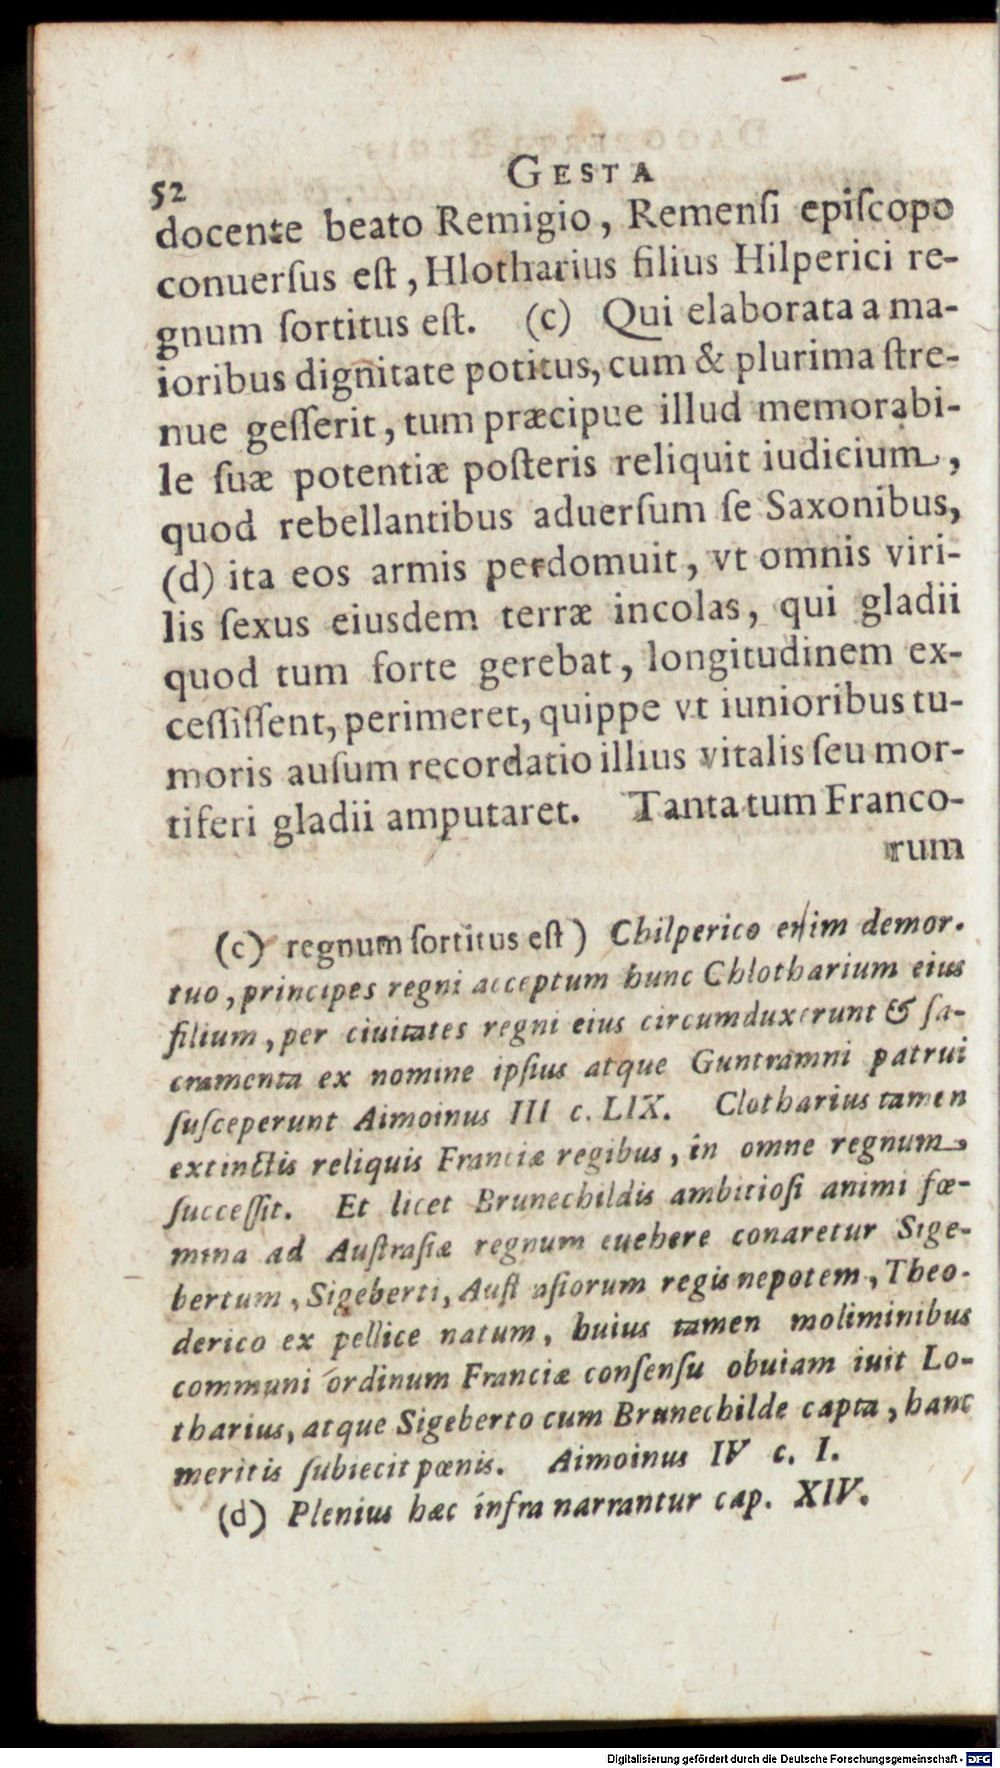 52
GESTA
docente beato Remigio, Remenſi epiſcopo
conuerſus eſt, Hlotharius filius Hilperici re-
gnum ſortitus eſt. (c) Qui elaborata a ma-
ioribus dignitate potitus, cum & plurima ſtre-
nue geſſerit, tum præcipue illud memorabi-
le ſuæ potentiæ poſteris reliquit iudicium,
quod rebellantibus aduerſum ſe Saxonibus,
(d) ita eos armis perdomuit, vt omnis viri-
lis ſexus eiusdem terræ incolas, qui gladii
quod tum forte gerebat, longitudinem ex-
ceſſiſſent, perimeret, quippe vt iunioribus tu-
moris auſum recordatio illius vitalis ſeu mor-
tiferi gladii amputaret. Tanta tum Franco-
rum
(c) regnum ſortitus eſt) Chilperico enim demor.
tuo, principes regni acceptum hunc Chlotharium eius
filium, per ciuitates regni eius circumduxerunt & ſa-
cramenta ex nomine ipſius atque Guntramni patrui
ſuſceperunt Aimoinus III c. LIX. Clotharius tamen
extinctis reliquis Franciæ regibus, in omne regnum
ſucceſſit. Et licet Brunechildis ambitioſi animi fœ-
mina ad Auſtraſiæ regnum euehere conaretur Sige-
bertum, Sigeberti, Auſt aſiorum regis nepotem, Theo-
derico ex pellice natum, huius tamen moliminibus
communi ordinum Franciæ conſenſu obuiam iuit Lo-
tharius, atque Sigeberto cum Brunechilde capta, hanc
meritis ſubiecit pœnis. Aimoinus IV c. I.
(d) Plenius hæc infra narrantur cap. XIV.
Digitalisierung gefördert durch die Deutsche Forschungsgemeinschaft - DFG